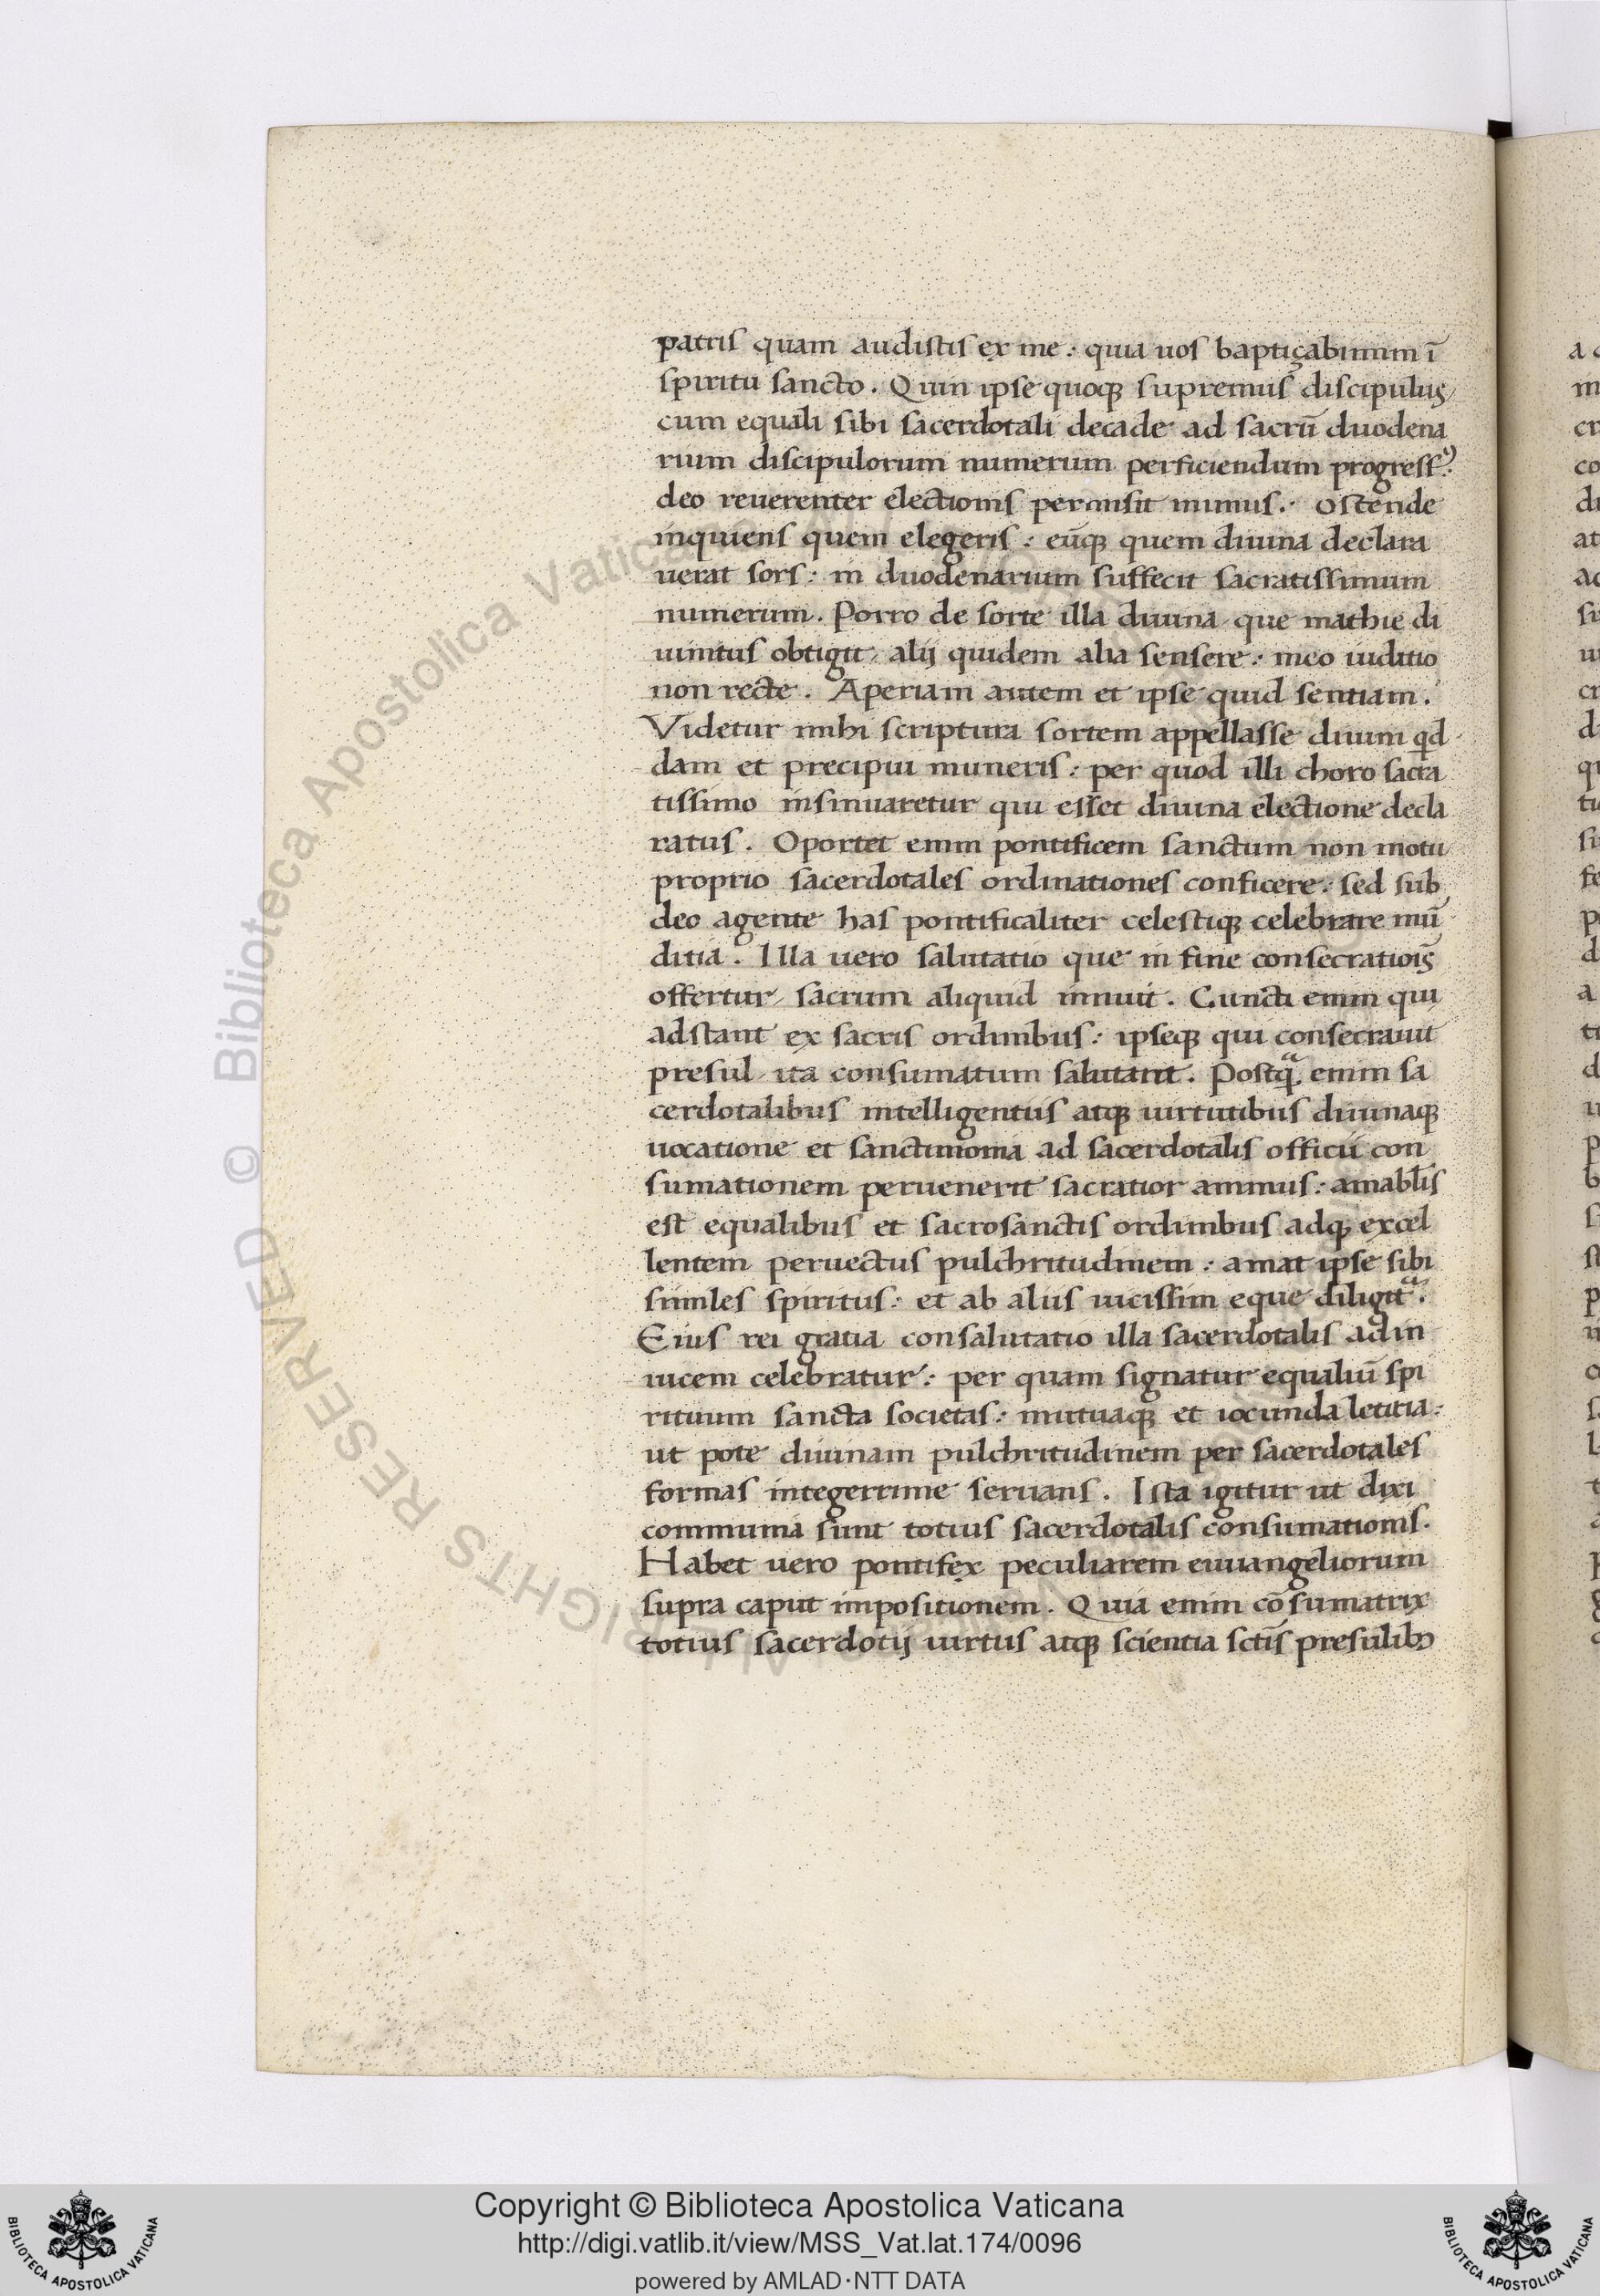 patris quam audistis ex me: quia uos baptiçabimini ī
spiritu sancto. Quin ipse quoq supremus discipulus
cum equali sibi sacerdotali decade ad sacrū duodena
rium discipulorum numerum perficiendum progress⁹:
deo reuerenter electionis permisit munus. ostende
inquiens quem elegeris: eūq quem diuina declara
uerat sors: in duodenarium suffecit sacratissimum
numerum. Porro de sorte illa diuina que mathie di
uinitus obtigit, alij quidem alia sensere: meo iuditio
non recte. Aperiam autem et ipse quid sentiam.
Videtur mihi scriptura sortem appellasse diuini qd
dam et precipui muneris: per quod illi choro sacra
tissimo insinuaretur qui esset diuina electione decla
ratus. Oportet enim pontificem sanctum non motu
proprio sacerdotales ordinationes conficere: sed sub
deo agente has pontificaliter celestiq celebrare mū
ditia. Illa uero salutatio que in fine consecratiōis
offertur, sacrum aliquid innuit. Cuncti enim qui
adstant ex sacris ordinibus: ipseq qui consecrauit
presul, ita consumatum salutant. Postqᵃ enim sa
cerdotalibus intelligentiis atq uirtutibus diuinaq
uocatione et sanctimonia ad sacerdotalis officii con
sumationem peruenerit sacratior animus: amabl̄is
est equalibus et sacrosanctis ordinibus adq excel
lentem peruectus pulchritudinem: amat ipse sibi
similes spiritus: et ab aliis uicissim eque diligitᵃ.
Eius rei gratia consalutatio illa sacerdotalis ad in
uicem celebratur: per quam signatur equaliū spi
rituum sancta societas: mutuaq et iocunda letitia:
ut pote diuinam pulchritudinem per sacerdotales
formas integerrime seruans. Ista igitur ut dixi
communia sunt totius sacerdotalis consumationis.
Habet uero pontifex peculiarem euuangeliorum
supra caput impositionem. Quia enim cōsumatrix
totius sacerdotij uirtus atq scientia sctīs presulibꝫ
Copyright © Biblioteca Apostolica Vaticana
http://digi.vatlib.it/view/MSS_Vat.lat.174/0096
powered by AMLAD·NTT DATA